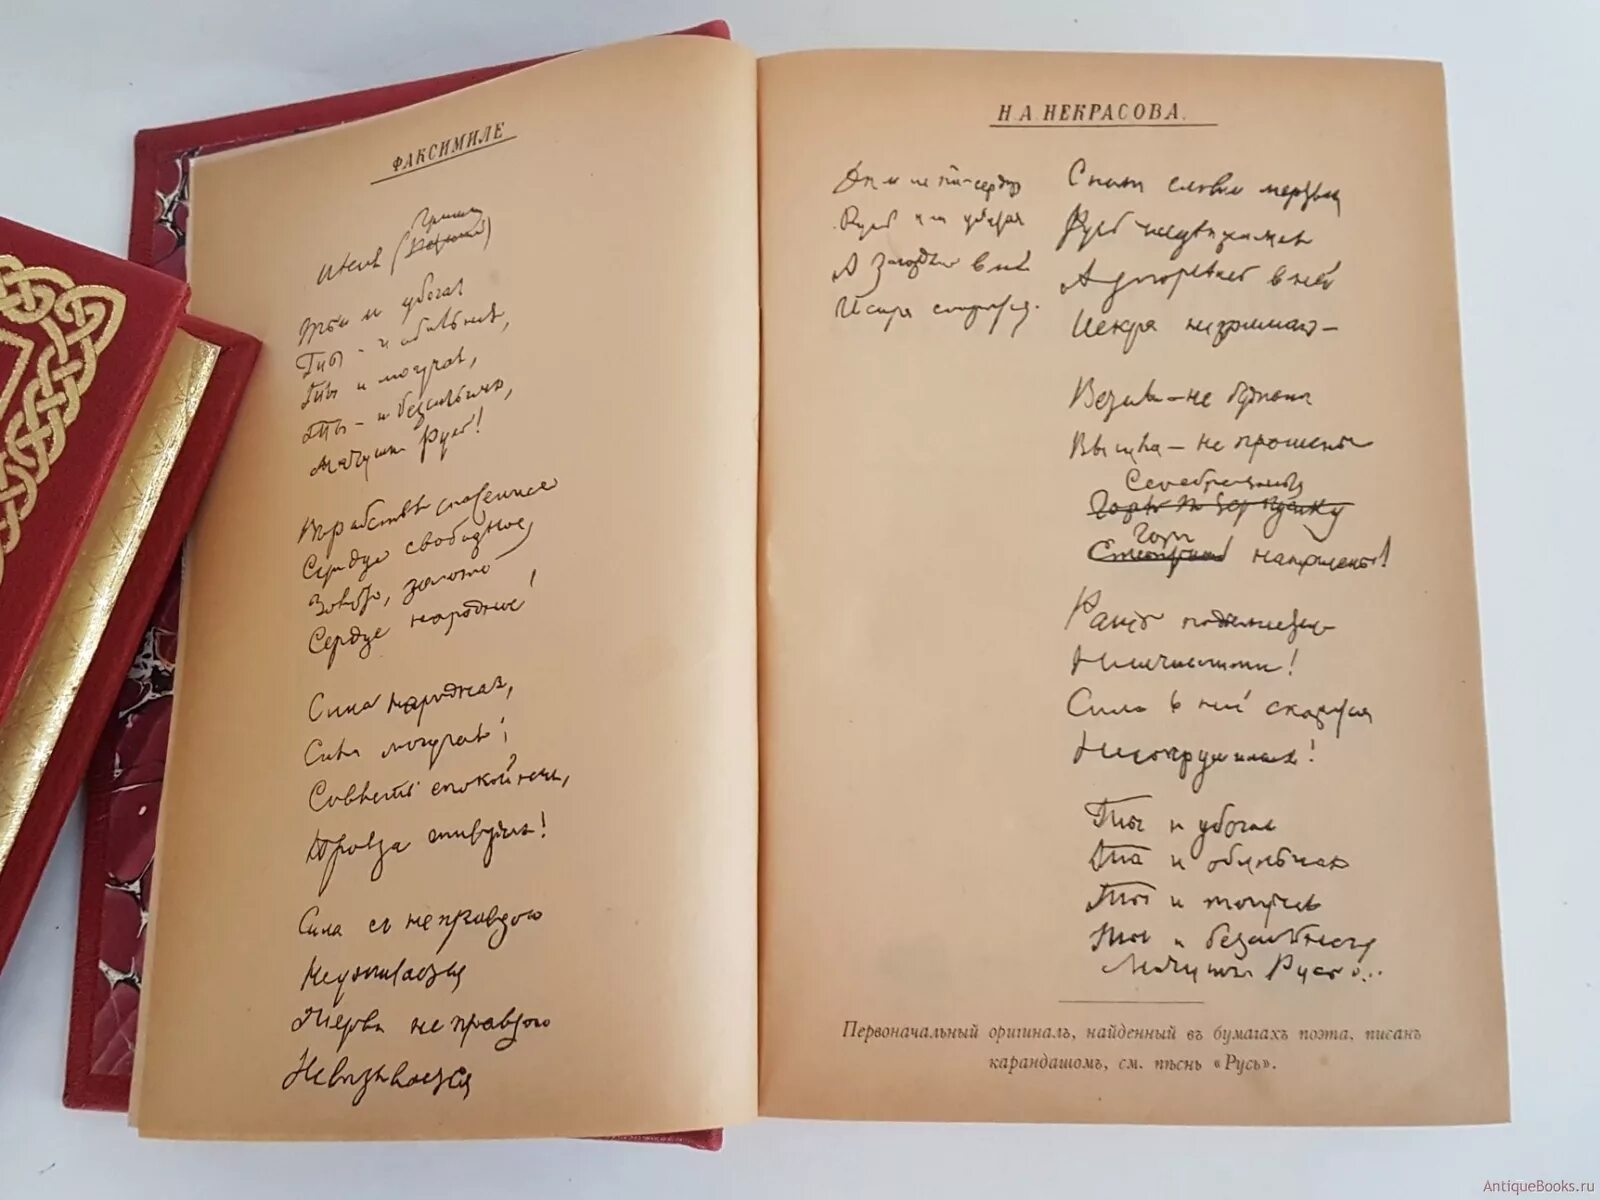 ФАКСИМИЛЕ
(Гриша
Ты и убогая
Ты - и обильная,
Ты и могучая,
Ты - и безсильная,
Матушка Русь!
Въ рабстве спасенное
Сердце свободное,
Золото, золото
Сердце народное!
Сила народная,
Сила могучая!
Совесть спокойная,
Правда живучая!
Сила съ неправдою
Неуживается
Жертва неправдою
Невызывается
Н. А. НЕКРАСОВА.
Русь как убитая
А в ней
Искра сокрытая.
Русь недвижимая
А в ней
Искра незримая -
Встали - не бужены
Вышли - не прошены
Серебряныя
Горы
наношены!
Рать подымается
Неисчислимая!
Сила в ней скажется
Несокрушимая!
Ты и убогая
Ты и обильная
Ты и
Ты и безсильная
Матушка Русь!..
Первоначальный оригиналъ, найденный въ бумагахъ поэта, писанъ
карандашомъ, см. пѣснь «Русь».
AntiqueBooks.ru